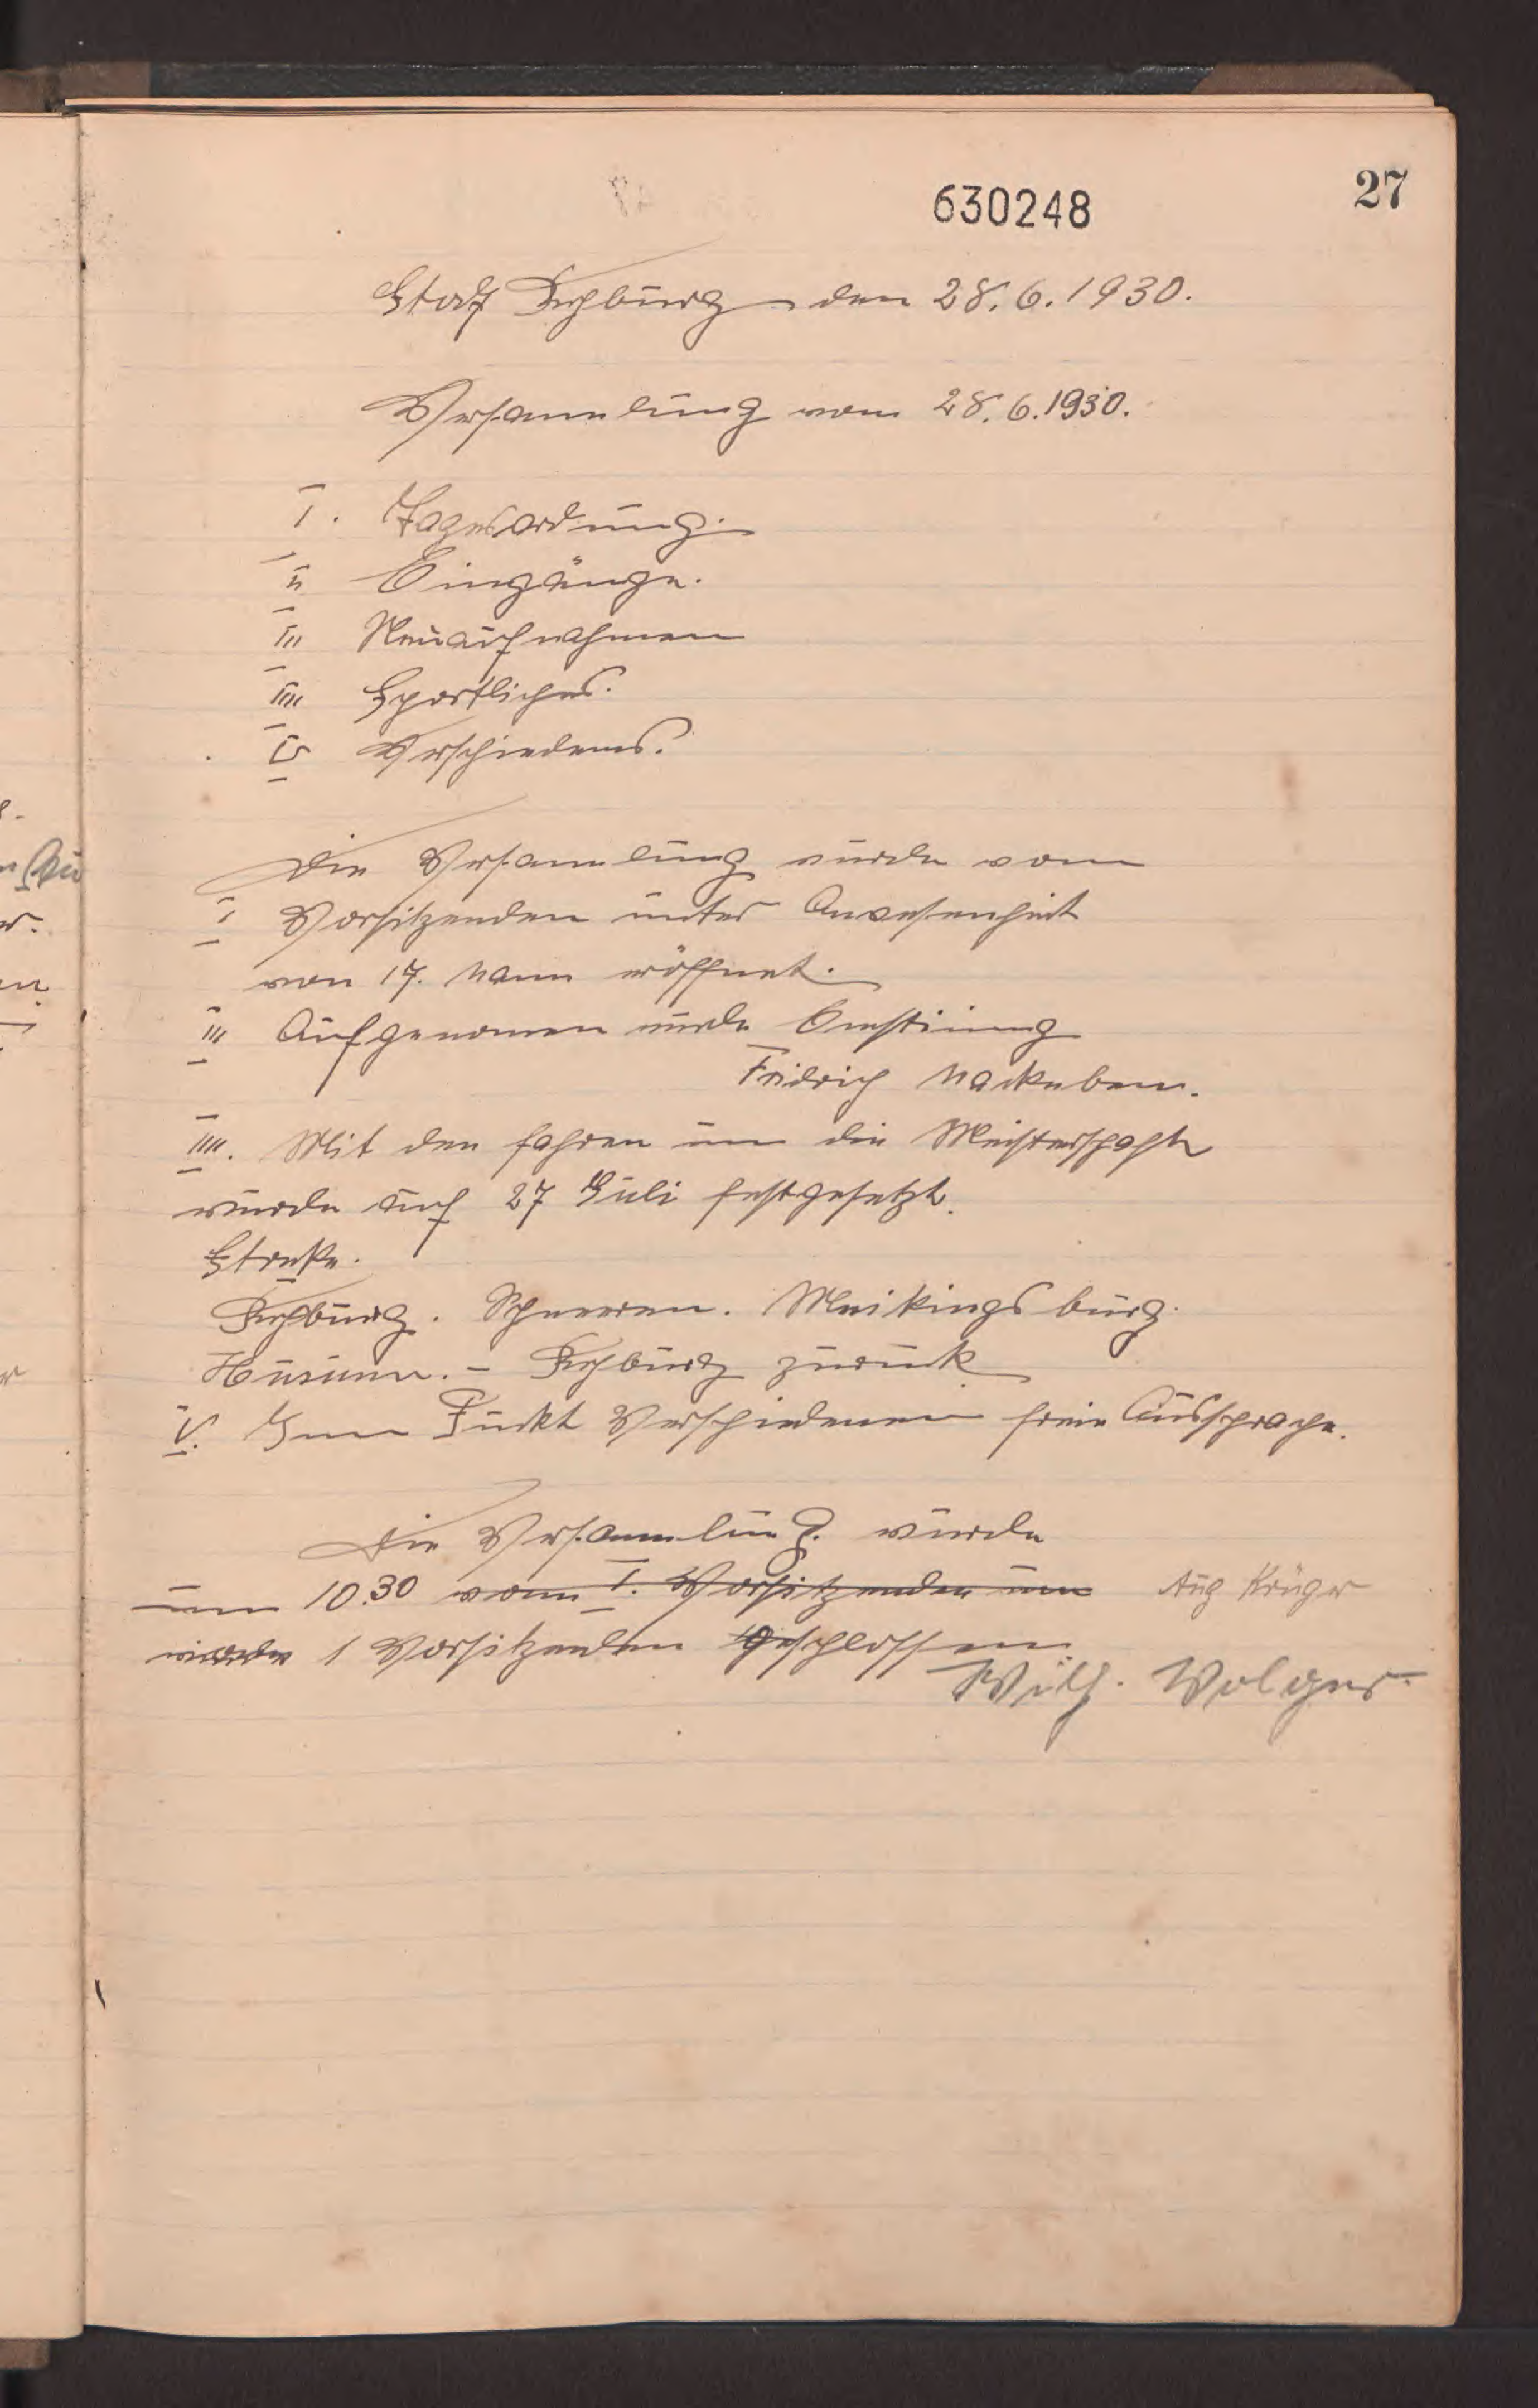 27
630248
Stadt Rehburg den 28.6.1930.
Versammlung vom 28.6.1930.
I. Tagesordnung.
II Eingänge.
III Neuaufnahmen
IIII Sportliches.
V Verschiedenes.
Die Versammlung wurde vom
I Vorsitzenden unter Anwesenheit
von 17. Mann eröffnet.
III Aufgenomen wurde
Fridrich Mackeben.
IIII. Mit den fahren um die Meisterschaft
wurde auf 27 Juli festgesetzt.
Streke.
Rehburg. Schneeren. Meikingsburg.
Husumm. – Rehburg zurück
V. Zum Punkt Verschiedenen freie Aussprache.
Die Versammlung. wurde
um 10.30 vom I. Vorsitzenden um Aug Krüger
wurde 1 Vorsitzenden geschlossen
Wilh. Wolger